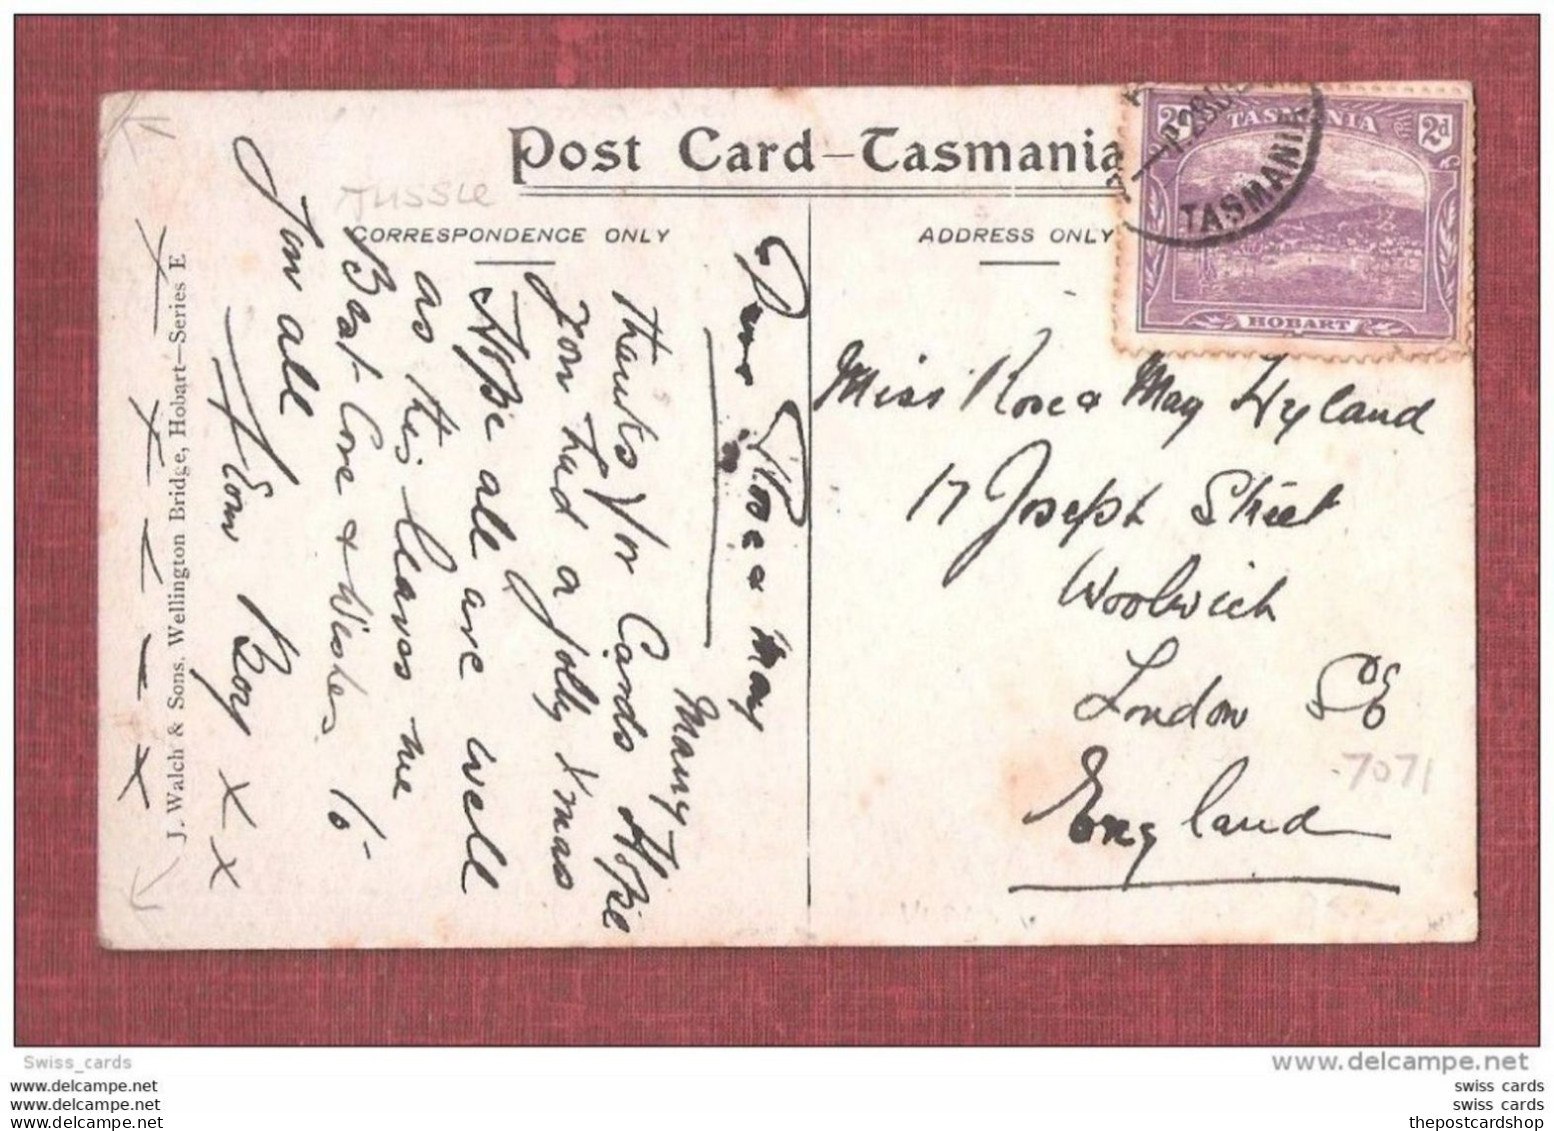 Post Card–Tasmania
AUSSIE
CORRESPONDENCE ONLY
ADDRESS ONLY
TASMANIA
2d 2d
HOBART
TASMANIA
Dear Rosea May
Many
thanks for Cards Hope
You had a Jolly Xmas
Hope all are well
as this leaves me
Best Love & Wishes to
You all
From Boy x x
x x x
J. Walch & Sons, Wellington Bridge, Hobart—Series E
Miss Rosea May Hyland
17 Joseph Street
Woolwich
London SE
England
7071
Swiss_cards
www.delcampe.net
www.delcampe.com
www.delcampe.com
www.delcampe.com
swiss cards
swiss cards
thepostcardshop